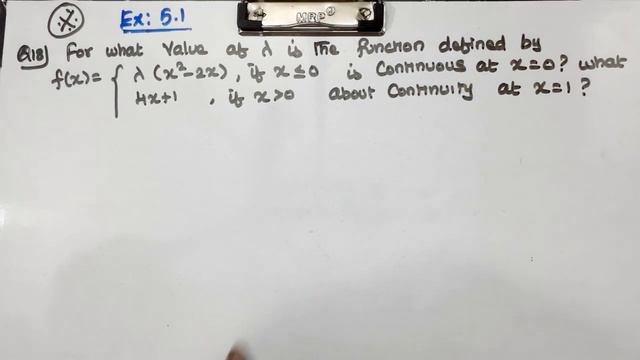 Ex: 5.1
MRP®
Q18) For what value of λ is the function defined by
f(x) = { λ (x²-2x), if x ≤ 0 is continuous at x=0? what
4x+1 , if x>0 about continuity at x=1?